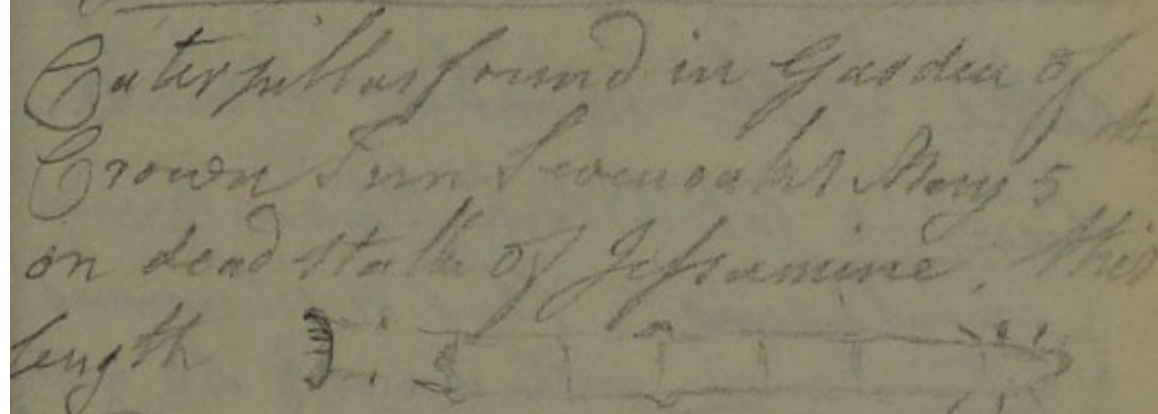 Caterpillar found in Garden of
Crown Inn Sevenoaks May 5
on dead stalk of Jessamine, this
length